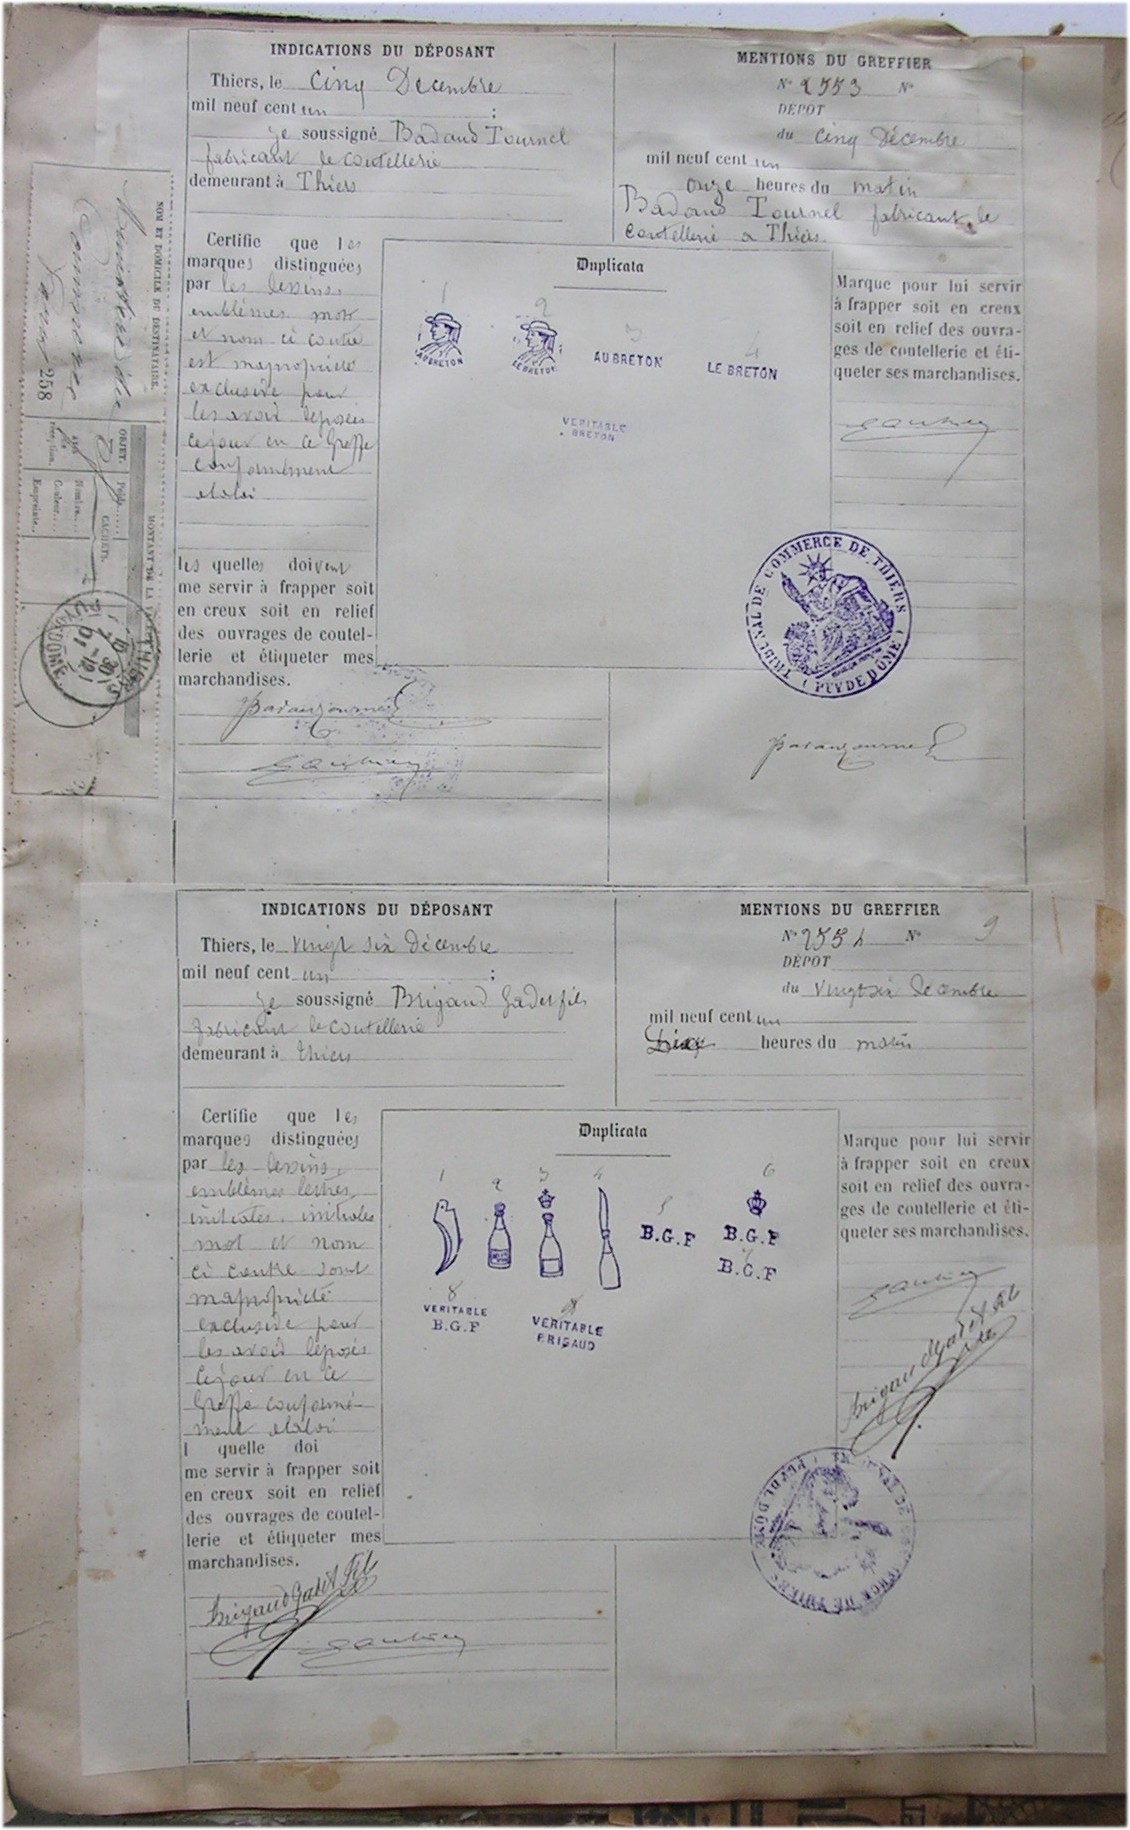 INDICATIONS DU DÉPOSANT
Thiers, le Cinq Decembre
mil neuf cent un ;
Je soussigné Badaud Tournel
fabricant de coutellerie
demeurant à Thiers
MENTIONS DU GREFFIER
N° 2553 N°
DÉPOT
du Cinq Décembre
mil neuf cent un
onze heures du matin
Badaud Tournel fabricant de
coutellerie a Thiers
Certifie que les
marques distinguées
par les dessins
emblèmes mot
et nom ci contre
est mapropriete
exclusive pour
les avoir déposés
cejour en ce Greffe
conformément
alaloi
les quelles doivent
me servir à frapper soit
en creux soit en relief
des ouvrages de coutel-
lerie et étiqueter mes
marchandises.
Duplicata
1 2 3 4
AU BRETON
LE BRETON
AU BRETON
LE BRETON
VERITABLE
BRETON
Marque pour lui servir
à frapper soit en creux
soit en relief des ouvra-
ges de coutellerie et éti-
queter ses marchandises.
TRIBUNAL DE COMMERCE DE THIERS
(PUY DE DÔME)
NOM ET DOMICILE DU DESTINATAIRE.
Ministre du
Commerce
Paris
258
OBJET.
Poids
CACHETS.
Nombre
Couleur
Empreinte
PUY-DE-DÔME
INDICATIONS DU DÉPOSANT
Thiers, le Vingt six Décembre
mil neuf cent un ;
Je soussigné Brigaud Gadet fils
fabricant de coutellerie
demeurant à Thiers
MENTIONS DU GREFFIER
N° 2554 N° 9
DÉPOT
du Vingt six Decembre
mil neuf cent un
Dix heures du matin
Certifie que les
marques distinguées
par les dessins,
emblèmes lettres
initiales. initiales
mot et nom
ci contre sont
mapropriété
exclusive pour
les avoir déposés
cejour en ce
Greffe conformé-
ment alaloi
l quelle doi
me servir à frapper soit
en creux soit en relief
des ouvrages de coutel-
lerie et étiqueter mes
marchandises.
Brigaud Gadet Fils
Duplicata
1 2 3 4 5 6
B.G.F
B.G.F
7
B.G.F
8
VERITABLE
B.G.F
VERITABLE
BRIGAUD
Marque pour lui servir
à frapper soit en creux
soit en relief des ouvra-
ges de coutellerie et éti-
queter ses marchandises.
Brigaud Gadet Fils